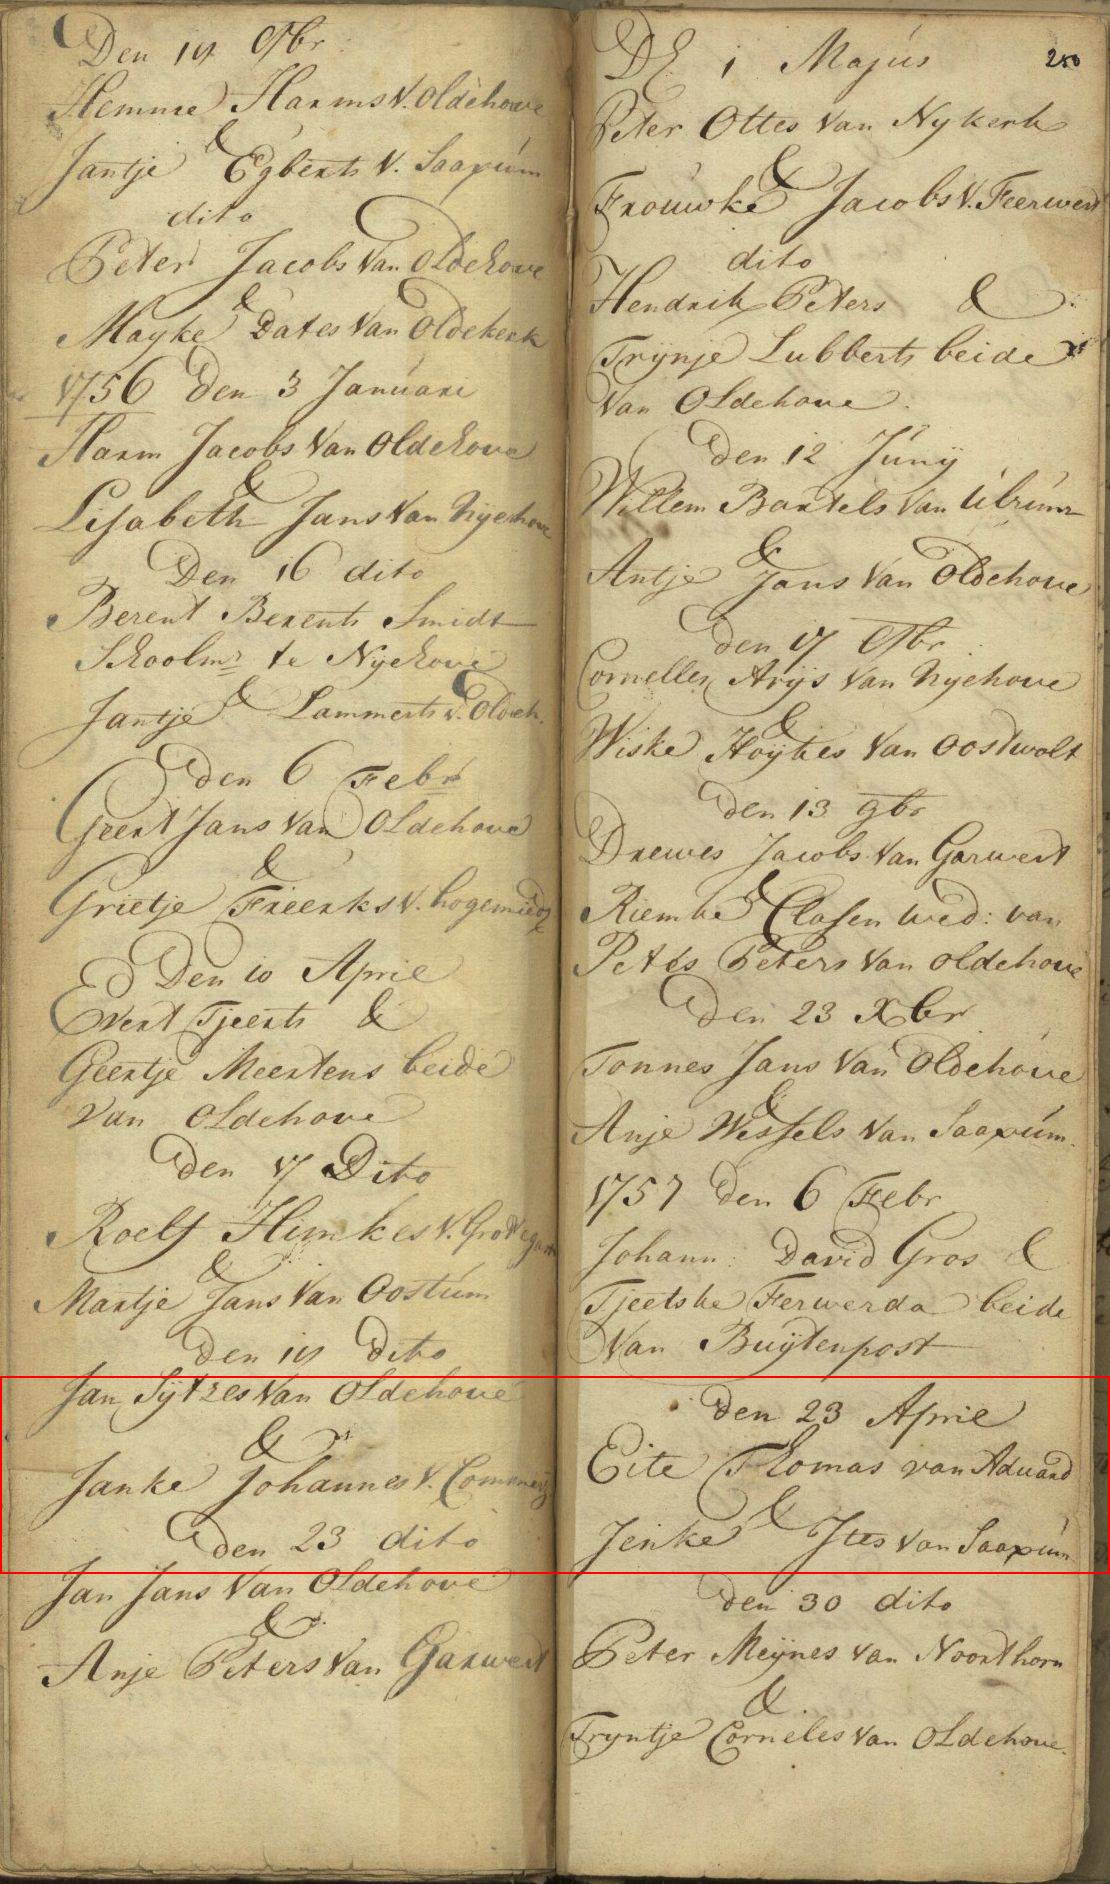 Den 19 9br
Hemme Harms V. Oldehove
&
Jantje Egberts V. Saaxum
dito
Peter Jacobs Van Oldehove
&
Mayke Dates Van Oldekerk
1756 Den 3 Januari
Harm Jacobs Van Oldehove
&
Lisabeth Jans Van Nyehove
Den 16 dito
Berent Berents Smidt
Schoolmr te Nyehove
&
Jantje Lammerts v. Oldeh.
Den 6 Febr
Geert Jans Van Oldehove
&
Grietje Freerks V.
Den 10 April
Evert Tjeerts &
Geertje Meertens beide
Van Oldehove
Den 17 Dito
Roelf Himkes V.
&
Martje Jans Van Oostum
Den 19 Dito
Jan Sytzes Van Oldehove
&
Janke Johannes V.
Den 23 dito
Jan Jans Van Oldehove
&
Anje Peters Van Garwert
250
DE 1 Majus
Peter Ottes Van Nykerk
&
Frouwke Jacobs V. Feerwert
dito
Hendrik Peters &
Trijnje Lubberts beide
Van Oldehove
Den 12 Juny
Willem Bartels Van Ulrum
&
Antje Jans Van Oldehove
Den 17 9br
Cornelles Arijs Van Nyehove
&
Wiske Hoyties Van Oostwolt
Den 13 9br
Drewes Jacobs Van Garwert
&
Riemke Clasen wed: van
Peters Van Oldehove
Den 23 Xbr
Tonnes Jans Van Oldehove
&
Anje Wessels Van Saaxum.
1757 Den 6 Febr
Johann David Gros &
Tjeetske Ferwerda beide
Van Buytenpost
Den 23 April
Eite Thomas van Aduard
&
Jenke Ites van Saaxum
Den 30 dito
Peter Meijnes van Noorthorn
&
Tryntje Corneles Van Oldehove.